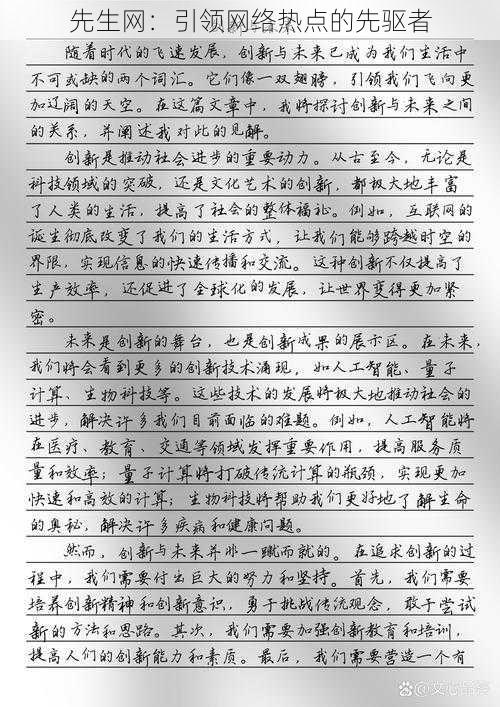 先生网：引领网络热点的先驱者
随着时代的飞速发展，创新与未来已成为我们生活中
不可或缺的两个词汇。它们像一双翅膀，引领我们飞向更
加辽阔的天空。在这篇文章中，我将探讨创新与未来之间
的关系，并阐述我对此的见解。
创新是推动社会进步的重要动力。从古至今，无论是
科技领域的突破，还是文化艺术的创新，都极大地丰富
了人类的生活，提高了社会的整体福祉。例如，互联网的
诞生彻底改变了我们的生活方式，让我们能够跨越时空的
界限，实现信息的快速传播和交流。这种创新不仅提高了
生产效率，还促进了全球化的发展，让世界变得更加紧
密。
未来是创新的舞台，也是创新成果的展示区。在未来，
我们将会看到更多的创新技术涌现，如人工智能、量子
计算、生物科技等。这些技术的发展将极大地推动社会的
进步，解决许多我们目前面临的难题。例如，人工智能将
在医疗、教育、交通等领域发挥重要作用，提高服务质
量和效率；量子计算将打破传统计算的瓶颈，实现更加
快速和高效的计算；生物科技将帮助我们更好地了解生命
的奥秘，解决许多疾病和健康问题。
然而，创新与未来并非一蹴而就的。在追求创新的过
程中，我们需要付出巨大的努力和坚持。首先，我们需要
培养创新精神和创新意识，勇于挑战传统观念，敢于尝试
新的方法和思路。其次，我们需要加强创新教育和培训，
提高人们的创新能力和素质。最后，我们需要营造一个有